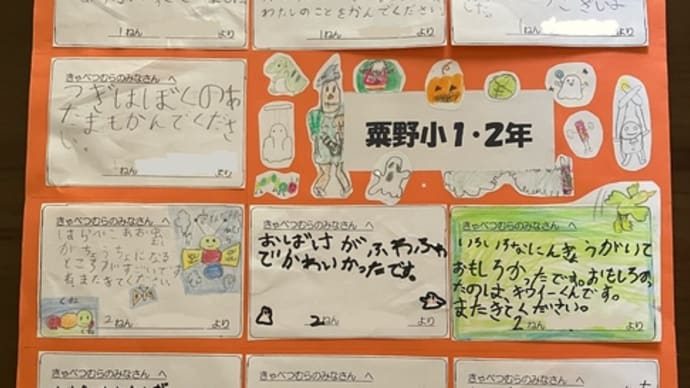 わたしのことをかんでください。
1ねん より
1ねん より
1ねん より
きゃべつむらのみなさん へ
つぎはぼくのあ
たまもかんでくださ
い。
2ねん より
粟野小1・2年
きゃべつむらのみなさん へ
はらぺこあお虫
がちょうちょになる
ところがすごいです
またきてください
2ねん より
きゃべつむらのみなさん へ
おばけがふわふわ
でかわいかったです。
2ねん より
きゃべつむらのみなさん へ
いろいろなにんぎょうがいて
おもしろかったです。おもしろかっ
たのは、キウイーくんです。
またきてください。
2ねん より
きゃべつむらのみなさん へ
きゃべつむらのみなさん へ
きゃべつむらのみなさん へ